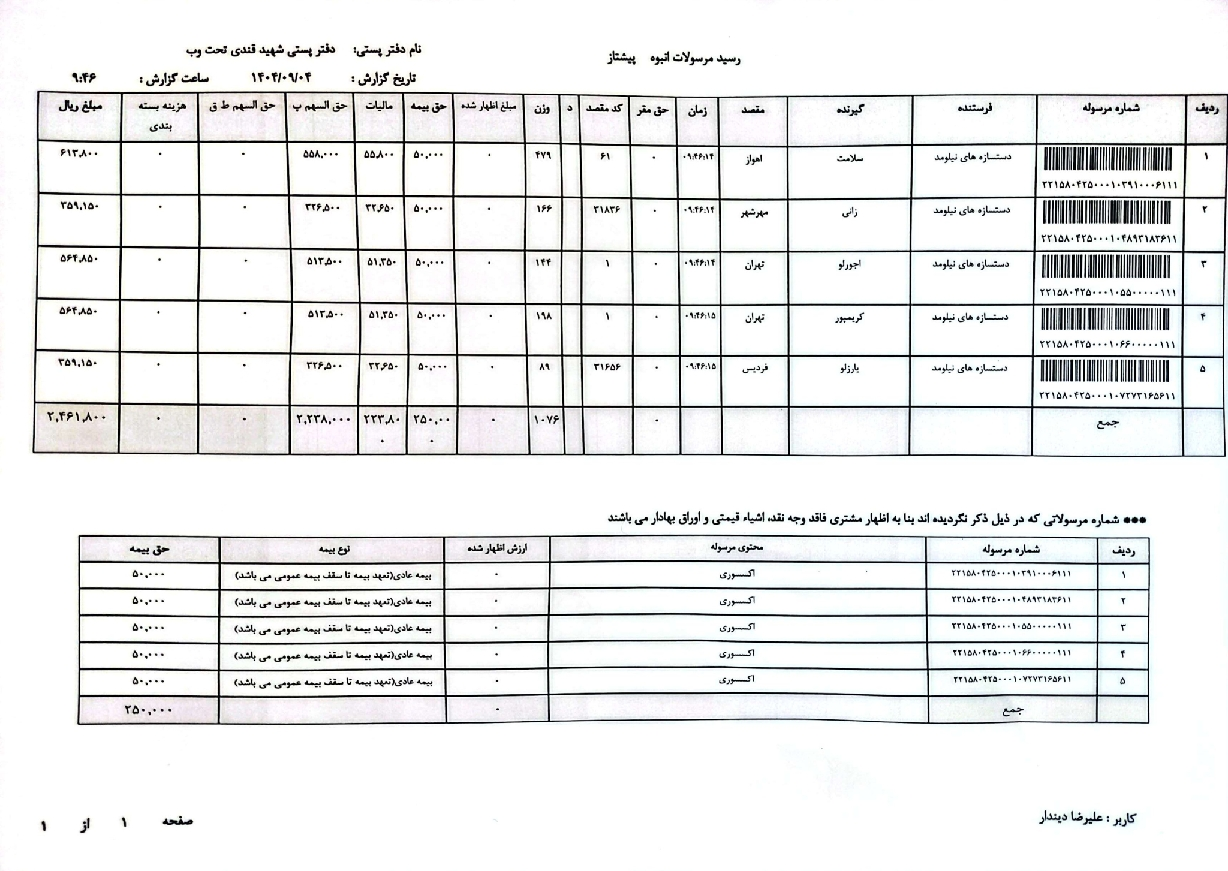 رسید مرسولات انبوه پیشتاز
نام دفتر پستی: دفتر پستی شهید قندی تحت وب
تاریخ گزارش : ۱۴۰۴/۰۹/۰۴ ساعت گزارش : ۹:۴۶
ردیف شماره مرسوله فرستنده گیرنده مقصد زمان حق مقر کد مقصد د وزن مبلغ اظهار شده حق بیمه مالیات حق السهم پ حق السهم ط ق هزینه بسته بندی مبلغ ریال
۱ ۲۲۱۵۸۰۴۲۵۰۰۰۱۰۳۹۱۰۰۰۶۱۱۱ دستسازه های نیلومد سلامت اهواز ۰۹:۴۶:۱۴ ۰ ۶۱ ۴۷۹ ۰ ۵۰,۰۰۰ ۵۵,۸۰۰ ۵۵۸,۰۰۰ ۰ ۰ ۶۱۳,۸۰۰
۲ ۲۲۱۵۸۰۴۲۵۰۰۰۱۰۴۸۹۳۱۸۳۶۱۱ دستسازه های نیلومد زانی مهرشهر ۰۹:۴۶:۱۴ ۰ ۳۱۸۳۶ ۱۶۶ ۰ ۵۰,۰۰۰ ۳۲,۶۵۰ ۳۲۶,۵۰۰ ۰ ۰ ۳۵۹,۱۵۰
۳ ۲۲۱۵۸۰۴۲۵۰۰۰۱۰۵۵۰۰۰۰۰۱۱۱ دستسازه های نیلومد اجورلو تهران ۰۹:۴۶:۱۴ ۰ ۱ ۱۴۴ ۰ ۵۰,۰۰۰ ۵۱,۳۵۰ ۵۱۳,۵۰۰ ۰ ۰ ۵۶۴,۸۵۰
۴ ۲۲۱۵۸۰۴۲۵۰۰۰۱۰۶۶۰۰۰۰۰۱۱۱ دستسازه های نیلومد کریمپور تهران ۰۹:۴۶:۱۵ ۰ ۱ ۱۹۸ ۰ ۵۰,۰۰۰ ۵۱,۳۵۰ ۵۱۳,۵۰۰ ۰ ۰ ۵۶۴,۸۵۰
۵ ۲۲۱۵۸۰۴۲۵۰۰۰۱۰۷۲۷۳۱۶۵۶۱۱ دستسازه های نیلومد یارزلو فردیس ۰۹:۴۶:۱۵ ۰ ۳۱۶۵۶ ۸۹ ۰ ۵۰,۰۰۰ ۳۲,۶۵۰ ۳۲۶,۵۰۰ ۰ ۰ ۳۵۹,۱۵۰
جمع ۰ ۱۰۷۶ ۰ ۲۵۰,۰۰۰ ۲۲۳,۸۰۰ ۲,۲۳۸,۰۰۰ ۰ ۰ ۲,۴۶۱,۸۰۰
●●● شماره مرسولاتی که در ذیل ذکر نگردیده اند بنا به اظهار مشتری فاقد وجه نقد، اشیاء قیمتی و اوراق بهادار می باشند
ردیف شماره مرسوله محتوی مرسوله ارزش اظهار شده نوع بیمه حق بیمه
۱ ۲۲۱۵۸۰۴۲۵۰۰۰۱۰۳۹۱۰۰۰۶۱۱۱ اکسسوری ۰ بیمه عادی(تعهد بیمه تا سقف بیمه عمومی می باشد) ۵۰,۰۰۰
۲ ۲۲۱۵۸۰۴۲۵۰۰۰۱۰۴۸۹۳۱۸۳۶۱۱ اکسسوری ۰ بیمه عادی(تعهد بیمه تا سقف بیمه عمومی می باشد) ۵۰,۰۰۰
۳ ۲۲۱۵۸۰۴۲۵۰۰۰۱۰۵۵۰۰۰۰۰۱۱۱ اکسسوری ۰ بیمه عادی(تعهد بیمه تا سقف بیمه عمومی می باشد) ۵۰,۰۰۰
۴ ۲۲۱۵۸۰۴۲۵۰۰۰۱۰۶۶۰۰۰۰۰۱۱۱ اکسسوری ۰ بیمه عادی(تعهد بیمه تا سقف بیمه عمومی می باشد) ۵۰,۰۰۰
۵ ۲۲۱۵۸۰۴۲۵۰۰۰۱۰۷۲۷۳۱۶۵۶۱۱ اکسسوری ۰ بیمه عادی(تعهد بیمه تا سقف بیمه عمومی می باشد) ۵۰,۰۰۰
جمع ۰ ۲۵۰,۰۰۰
کاربر : علیرضا دیندار
صفحه ۱ از ۱